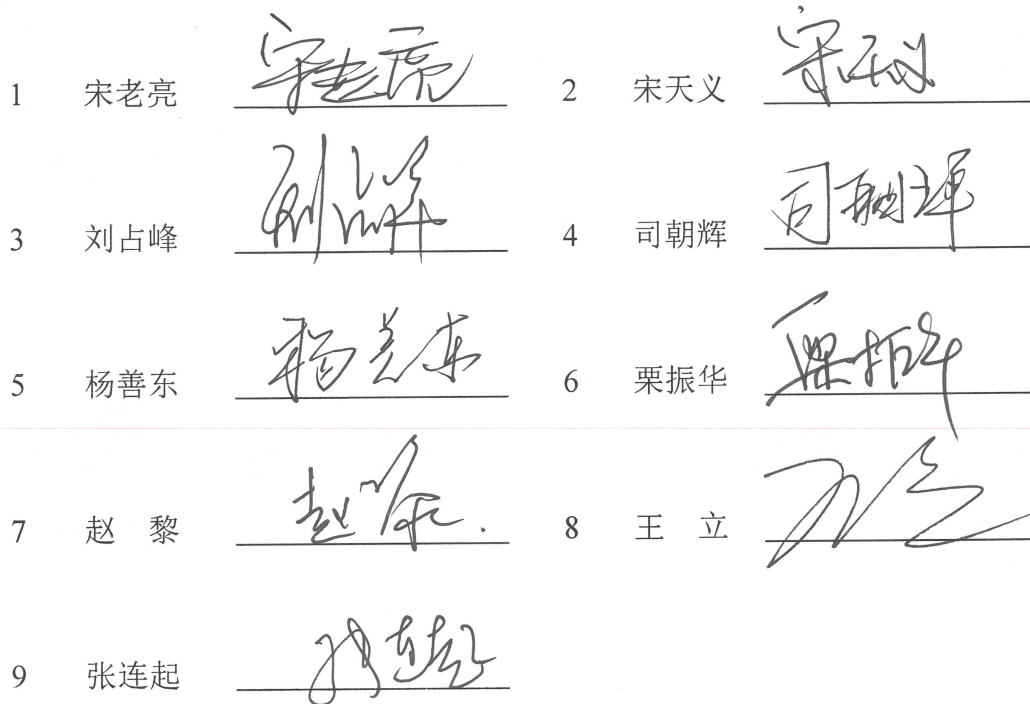 1 宋老亮 宋老亮 2 宋天义 宋天义
3 刘占峰 刘占峰 4 司朝辉 司朝辉
5 杨善东 杨善东 6 栗振华 栗振华
7 赵 黎 赵黎 8 王 立 王立
9 张连起 张连起